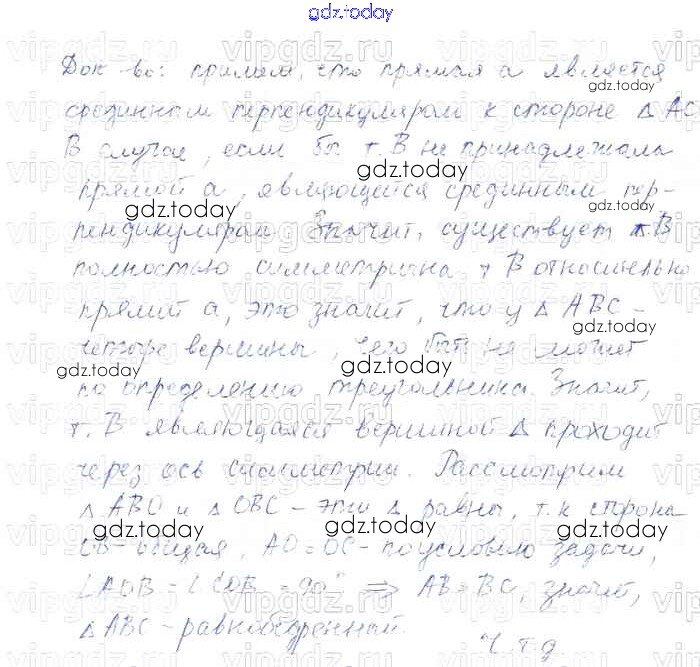 gdz.today
Док-во: примем, что прямая a является
срединным перпендикуляром к стороне △ AC
В случае, если бы т. B не принадлежала
прямой a, являющейся срединным пер-
пендикуляром. Значит, существует т. B
полностью симметрична т B относительно
прямой a, это значит, что у △ ABC -
четыре вершины, чего быть не может
по определению треугольника. Значит,
т. B являющаяся вершиной △ проходит
через ось симметрии. Рассмотрим
△ ABO и △ OBC - эти △ равны, т. к сторона
OB - общая, AO = OC - по условию задачи,
∠AOB = ∠COB = 90° ⇒ AB = BC, значит,
△ ABC - равнобедренный.
Ч. т. д